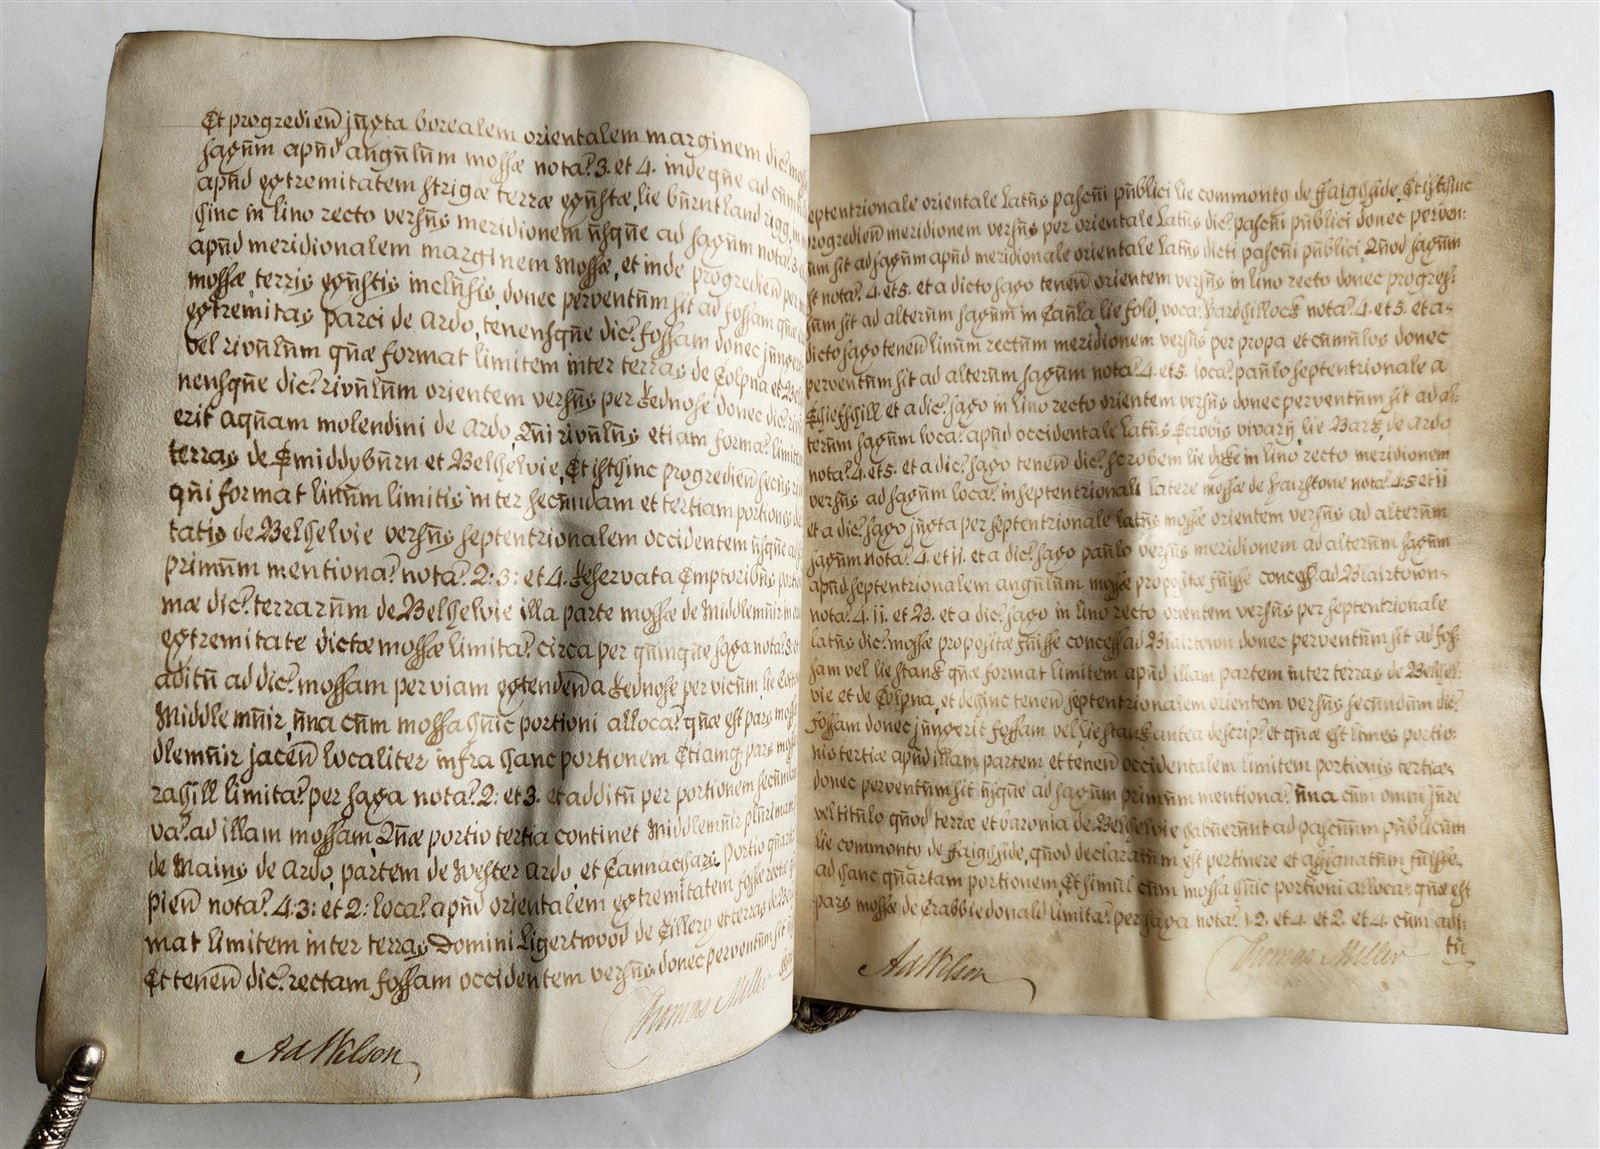 Et progredien̄ juxta borealem orientalem marginem dic: mossæ
saxum apud angulum mossæ nota: 3. et 4. indeque ad cumulum
apud extremitatem strigæ terræ exustæ, lie burnt land rigg,
hinc in lino recto versus meridionem usque ad saxum nota: 3.
apud meridionalem marginem Mossæ, et inde progredien̄ per
mossæ, terris exustis inclusis, donec perventum sit ad fossam quæ
extremitas parci de Ardo, tenensque dic: fossam donec junxerit
vel rivulum quæ format limitem inter terras de Colpna et Bel
nensque dic: rivulum orientem versus per Rednose, donec dic: riv
erit aquam molendini de Ardo, Qui rivulus etiam forma: limitem
terras de Smiddyburn et Belhelvie, Et isthinc progredien̄ secus riv
qui format linum limitis inter secundam et tertiam portiones
tatis de Belhelvie versus septentrionalem occidentem usque ad
primum mentiona: nota: 2: 3: et 4. Reservata Emptoribus portio
mæ dic: terrarum de Belhelvie illa parte mossæ de Middlemuir in
extremitate dictæ mossæ limita: circa per quinque saxa nota: 3:
aditu ad dic: mossam per viam extenden̄ a Rednose per vicum lie
Middlemuir, una cum mossa huic portioni alloca: quæ est pars mossæ
dlemuir jacen̄ localiter infra hanc portionem Etiamq pars mossæ
rahill limita: per saxa nota: 2: et 3. et additu per portionem secundam
va: ad illam mossam, Quæ portio tertia continet Middlemuir plurimam
de Mains de Ardo, partem de Wester Ardo, et Cannahars, portio quarta
pien̄ nota: 4: 3: et 2: loca: apud orientalem extremitatem fossæ rectæ
mat limitem inter terras Domini Ligertwood de Tillery et terras de Bel
Et tenen̄ dic: rectam fossam occidentem versus donec perventum sit
Ad Wilson
Thomas Miller
septentrionale orientale latus pascui publici lie commonty de Faighside, Et isthinc
progredien̄ meridionem versus per orientale latus dic: pascui publici donec perven:
tum sit ad saxum apud meridionale orientale latus dicti pascui publici, Quod saxum
est nota: 4. et 5. et a dicto saxo tenen̄ orientem versus in lino recto donec progres:
sum sit ad alterum saxum in Caula lie fold, voca: Yardhillock nota: 4. et 5. et a
dicto saxo tenen̄ linum rectum meridionem versus per propa et cumulos donec
perventum sit ad alterum saxum nota: 4. et 5. loca: paulo septentrionale a
Shieshill et a dic: saxo in lino recto orientem versus donec perventum sit ad al:
terum saxum loca: apud occidentale latus Scrobis vivarij, lie Park, de Ardo
nota: 4. et 5. et a dic: saxo tenen̄ dic: scrobem lie dyke in lino recto meridionem
versus ad saxum loca: in septentrionali latere mossæ de Fairstone nota: 4: 5: et 11
et a dic: saxo juxta per septentrionale latus mossæ orientem versus ad alterum
saxum nota: 4. et 11. et a dic: saxo paulo versus meridionem ad alterum saxum
apud septentrionalem angulum mossæ propositæ fuisse concess ad Blairtown
nota: 4. 11. et B. et a dic: saxo in lino recto orientem versus per septentrionale
latus dic: mossæ propositæ fuisse concess ad Blairtown donec perventum sit ad fos:
sam vel lie stank quæ format limitem apud illam partem inter terras de Belhel:
vie et de Colpna, et dehinc tenen̄ septentrionalem orientem versus secundum dic:
fossam donec junxerit fossam vel, lie stank antea descrip: et quæ est limes portio:
nis tertiæ apud illam partem, et tenen̄ occidentalem limitem portionis tertiæ
donec perventum sit usque ad saxum primum mentiona: una cum omni jure
vel titulo quod terræ et baronia de Belhelvie habuerunt ad pascuum publicum
lie commonty de Faighside, quod declaratum est pertinere et assignatum fuisse
ad hanc quartam portionem, Et simul cum mossa huic portioni alloca: quæ est
pars mossæ de Crabbiedonald limita: per saxa nota: 1. 2. et 4. et 2. et 4. cum adi:
tu
Ad Wilson
Thomas Miller